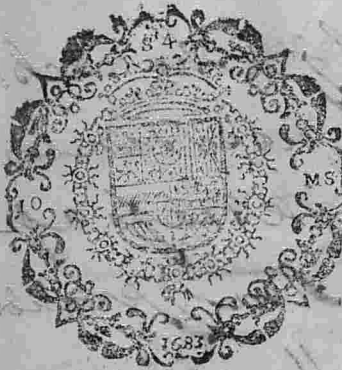 S 4
10
MS
1683